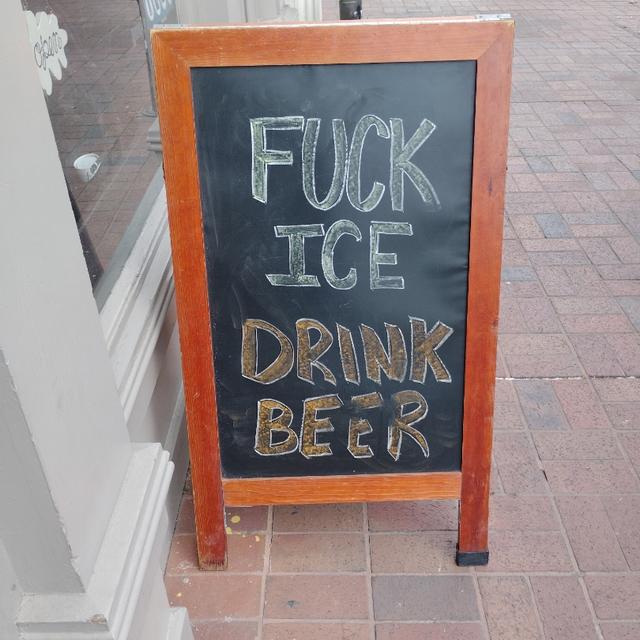 Open
FUCK
ICE
DRINK
BEER